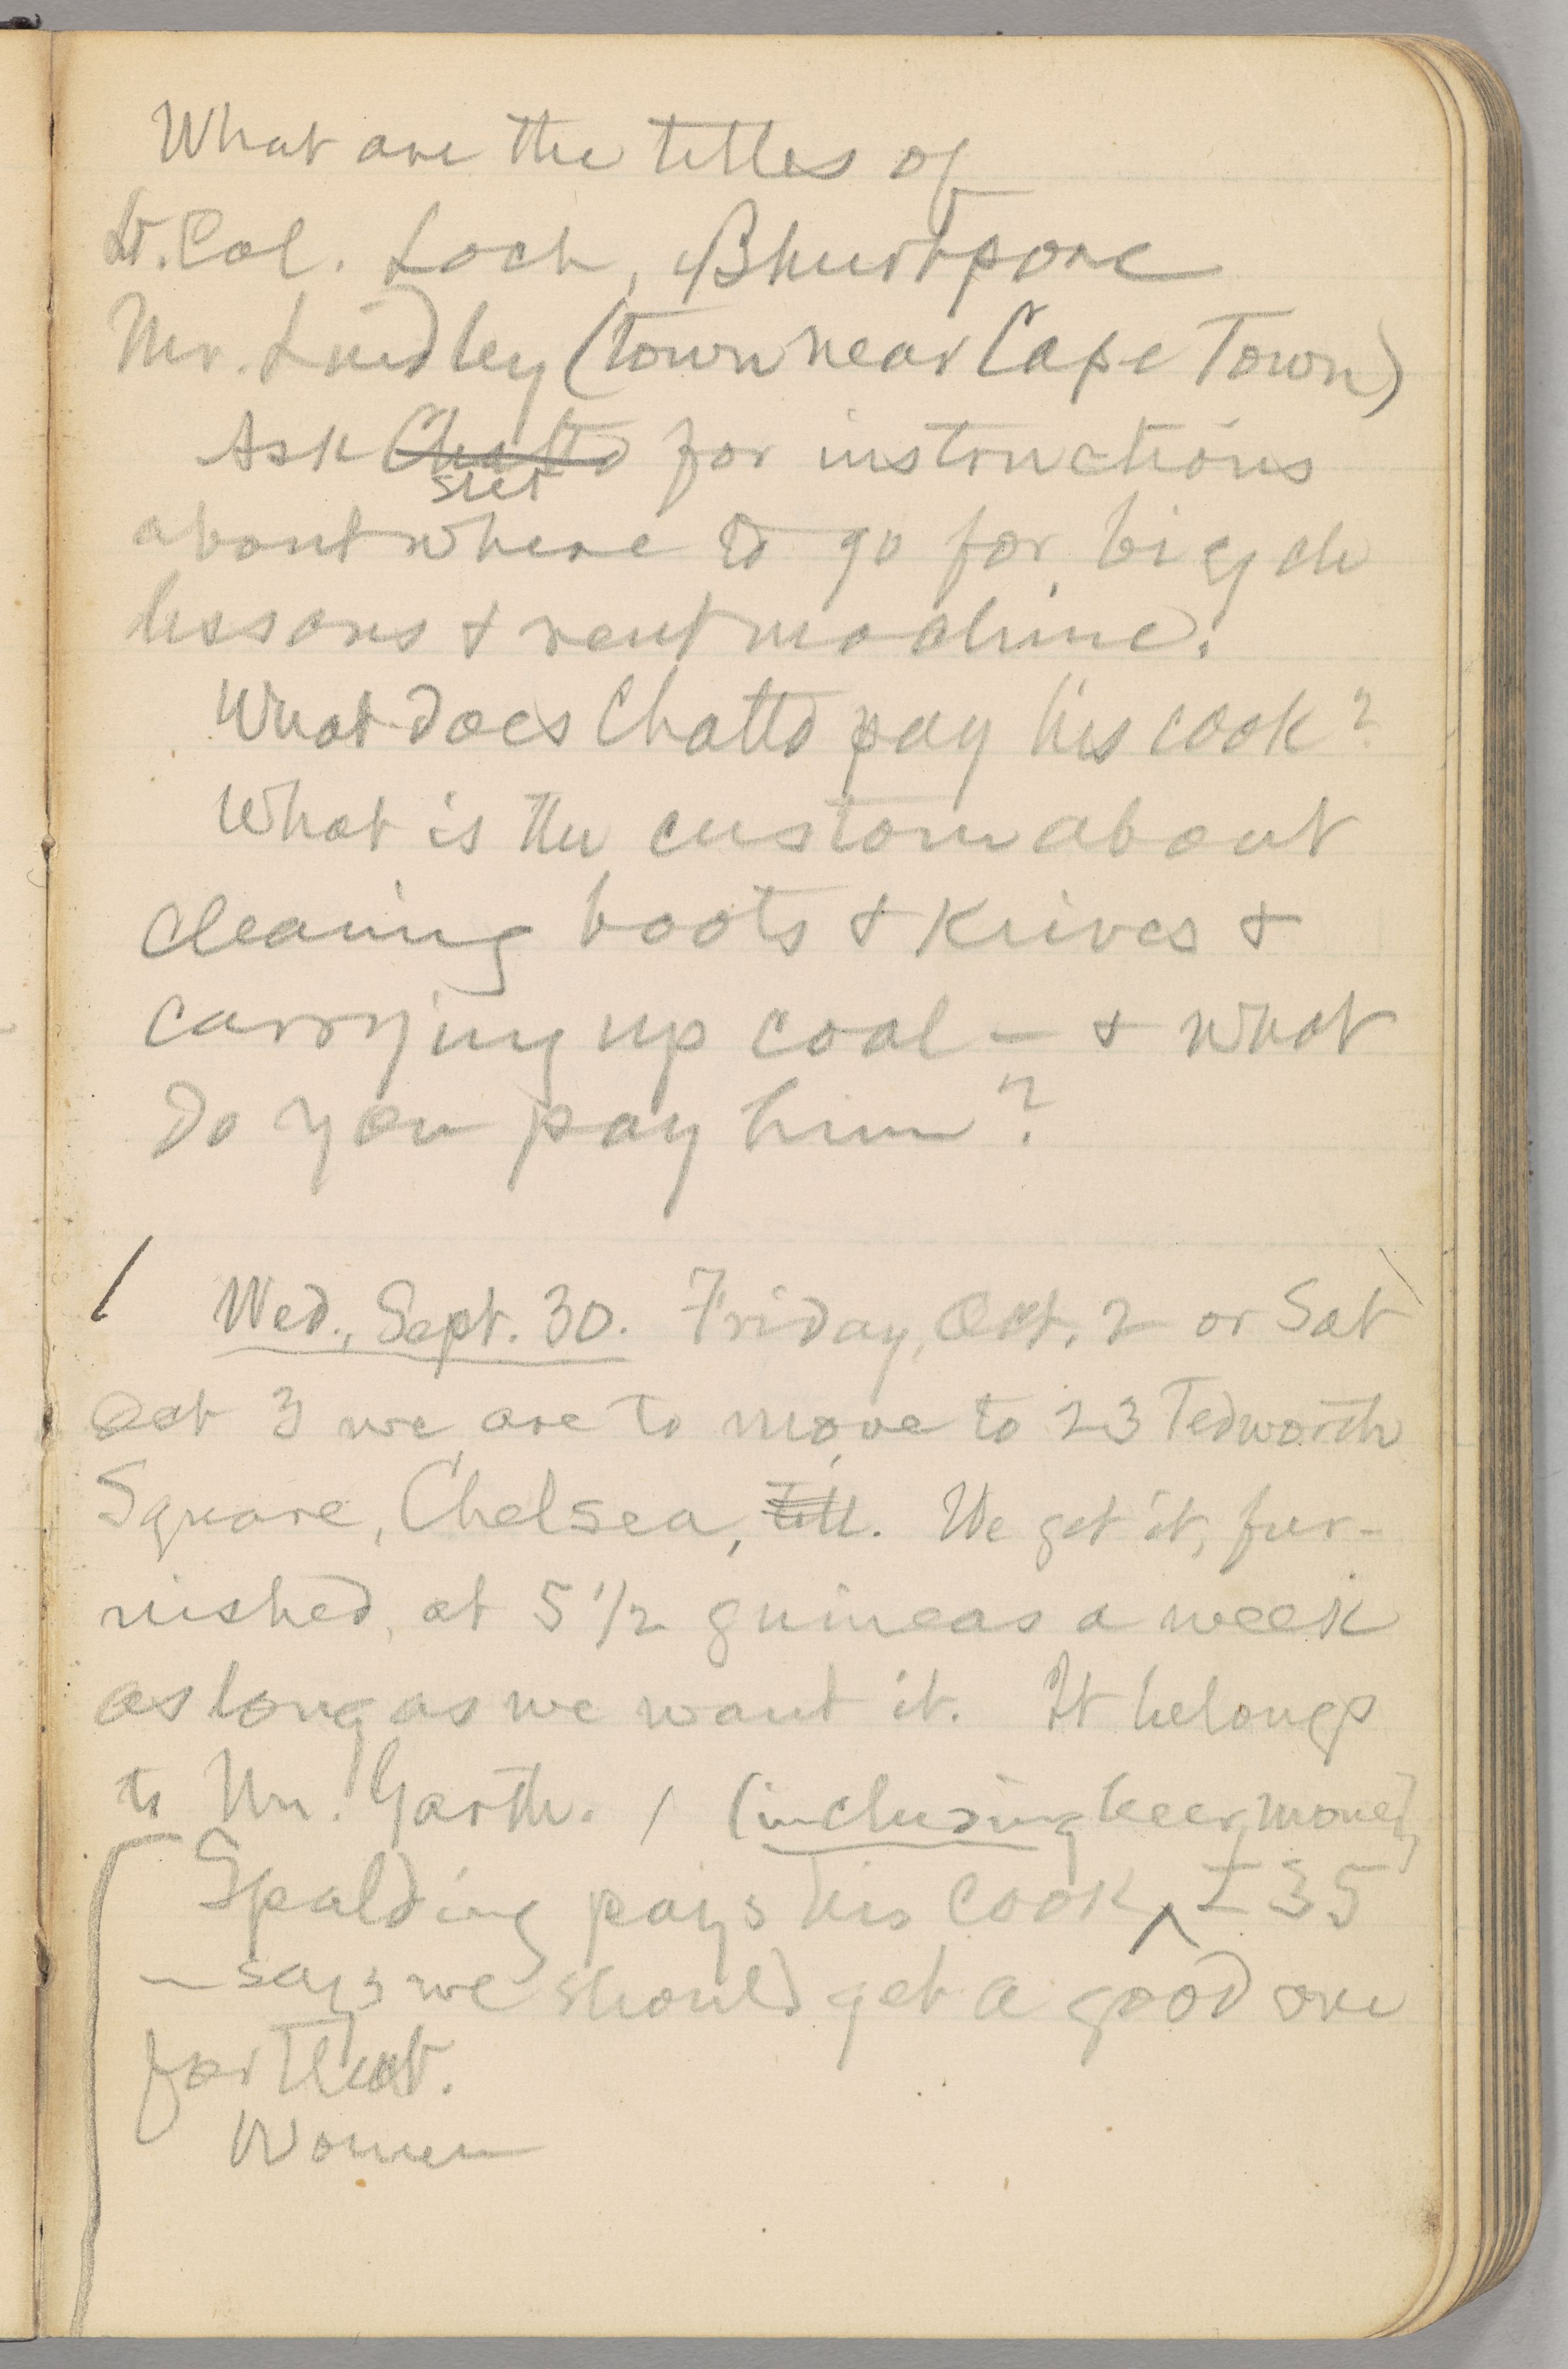 What are the titles of
Lt. Col. Loch, Bhurtpore
Mr. Lindley (town near Cape Town)
Ask Chatto for instructions
stet
about where to go for bicycle
lessons & rent machine.
What does Chatto pay his cook?
What is the custom about
cleaning boots & knives &
carrying up coal — & what
do you pay him?
Wed., Sept. 30. Friday, Oct. 2 or Sat
Oct 3 we are to move to 23 Tedworth
Square, Chelsea, till. We get it, fur-
nished, at 5 1/2 guineas a week
as long as we want it. It belongs
to Mr. Garth. / (including beer money)
Spalding pays his cook ^ £35
— says we should get a good one
for that.
Women